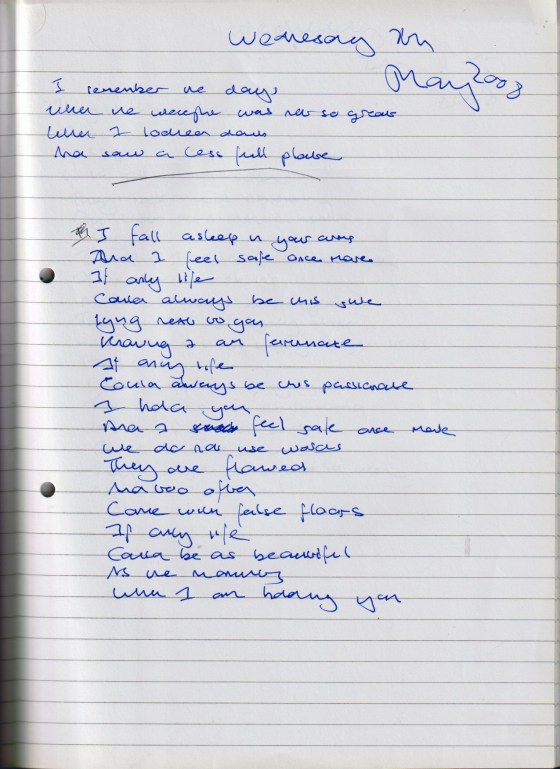 Wednesday 7th
May 2003
I remember the days
When the weight was not so great
When I looked down
And saw a less full plate
I fall asleep in your arms
And I feel safe once more
If only life
Could always be this sure
Lying next to you
Knowing I am fortunate
If only life
Could always be this passionate
I hold you
And I feel safe once more
We do not use words
They are flawed
And too often
Come with false floors
If only life
Could be as beautiful
As the morning
When I am holding you